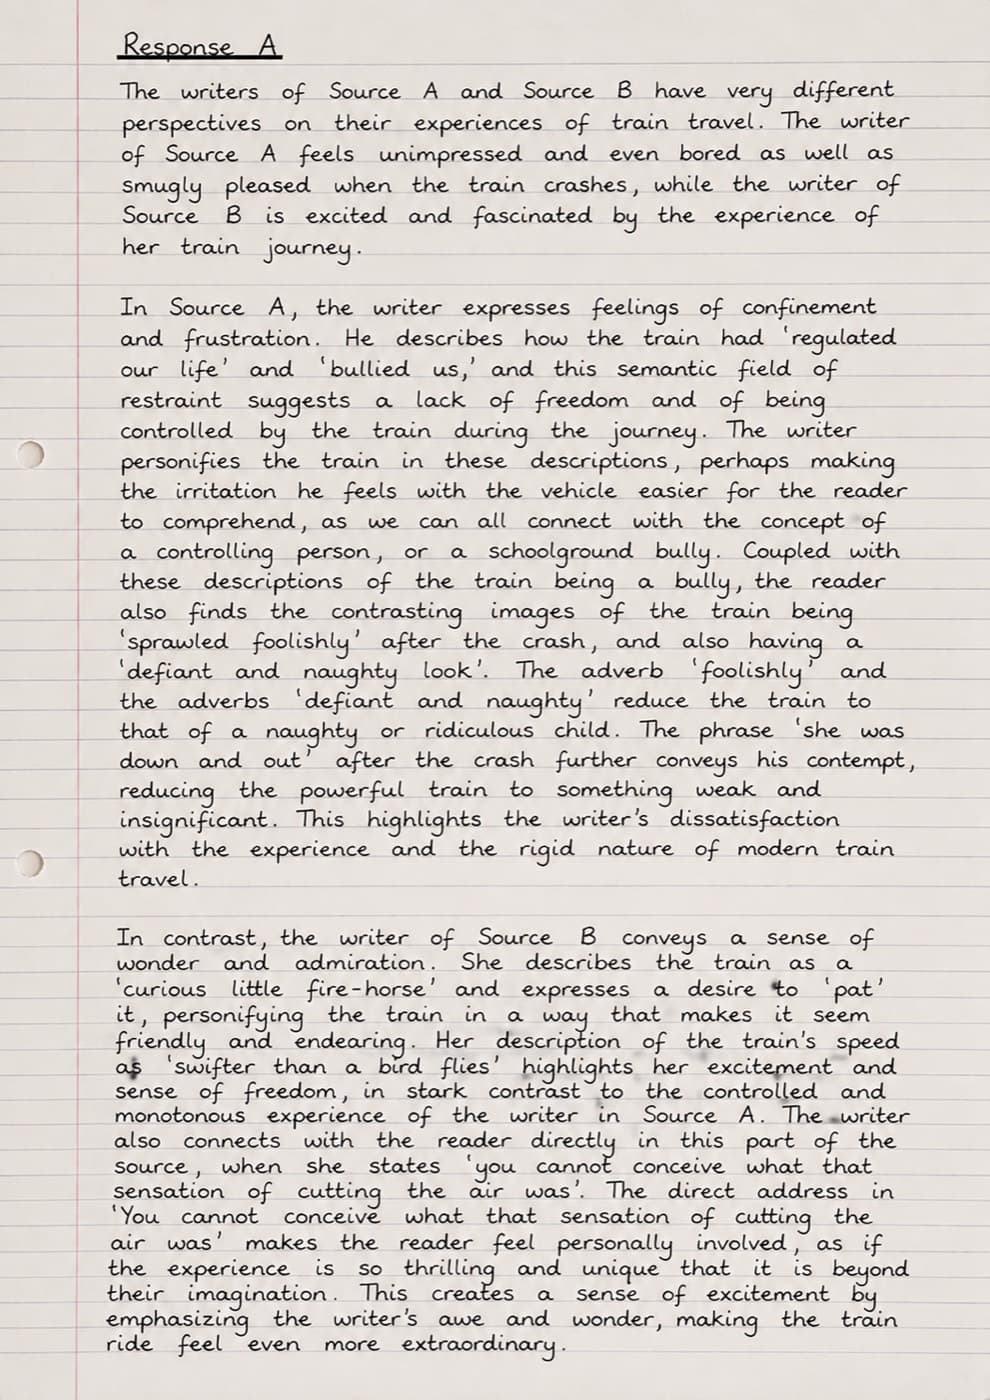 Response A
The writers of Source A and Source B have very different
perspectives on their experiences of train travel. The writer
of Source A feels unimpressed and even bored as well as
smugly pleased when the train crashes, while the writer of
Source B is excited and fascinated by the experience of
her train journey.
In Source A, the writer expresses feelings of confinement
and frustration. He describes how the train had 'regulated
our life' and 'bullied us,' and this semantic field of
restraint suggests a lack of freedom and of being
controlled by the train during the journey. The writer
personifies the train in these descriptions, perhaps making
the irritation he feels with the vehicle easier for the reader
to comprehend, as we can all connect with the concept of
a controlling person, or a schoolground bully. Coupled with
these descriptions of the train being a bully, the reader
also finds the contrasting images of the train being
'sprawled foolishly' after the crash, and also having a
'defiant and naughty look'. The adverb 'foolishly' and
the adverbs 'defiant and naughty' reduce the train to
that of a naughty or ridiculous child. The phrase 'she was
down and out' after the crash further conveys his contempt,
reducing the powerful train to something weak and
insignificant. This highlights the writer's dissatisfaction
with the experience and the rigid nature of modern train
travel.
In contrast, the writer of Source B conveys a sense of
wonder and admiration. She describes the train as a
'curious little fire-horse' and expresses a desire to 'pat'
it, personifying the train in a way that makes it seem
friendly and endearing. Her description of the train's speed
as 'swifter than a bird flies' highlights her excitement and
sense of freedom, in stark contrast to the controlled and
monotonous experience of the writer in Source A. The writer
also connects with the reader directly in this part of the
source, when she states 'you cannot conceive what that
sensation of cutting the air was'. The direct address in
'You cannot conceive what that sensation of cutting the
air was' makes the reader feel personally involved, as if
the experience is so thrilling and unique that it is beyond
their imagination. This creates a sense of excitement by
emphasizing the writer's awe and wonder, making the train
ride feel even more extraordinary.